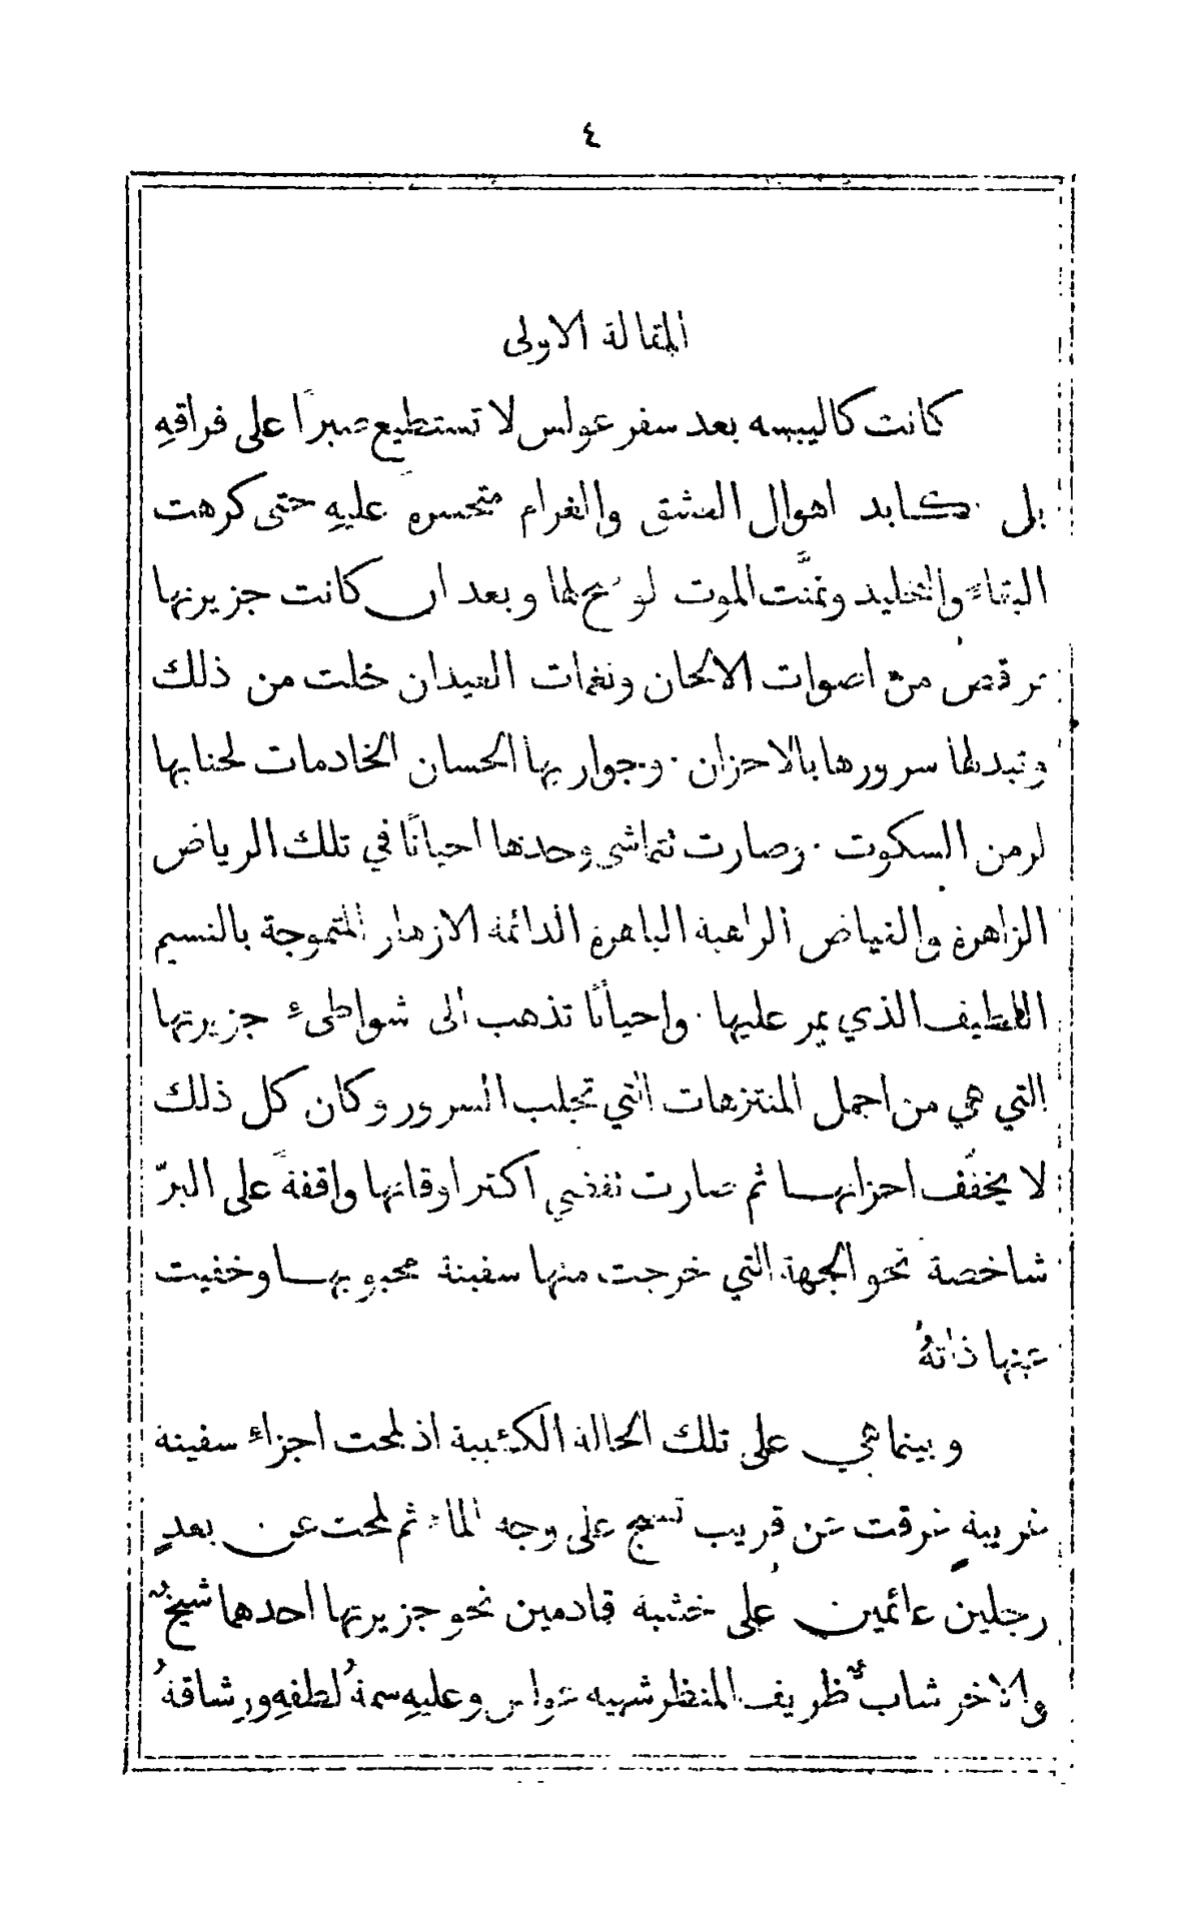 ٤
المقالة الاولى
كانت كاليبسه بعد سفر عولس لا تستطيع صبرًا على فراقهِ
بل تكابد اهوال العشق والغرام متحسرةً عليهِ حتى كرهت
البقاءَ والتخليد وتمنَّت الموت لو صح لها وبعد ان كانت جزيرتها
ترقص من اصوات الالحان ونغمات العيدان خلت من ذلك
وتبدل لها سرورها بالاحزان. وجواريها الحسان الخادمات لجنابها
لزمن السكوت. وصارت تتماشى وحدها احيانًا في تلك الرياض
الزاهرة والغياض الراهبة الباهرة الدائمة الازهار المتموجة بالنسيم
اللطيف الذي يمر عليها. واحيانًا تذهب الى شواطئ جزيرتها
التي هي من اجمل المنتزهات التي تجلب السرور وكان كل ذلك
لا يخفّف احزانها ثم صارت تقضي اكثر اوقاتها واقفةً على البرّ
شاخصة نحو الجهة التي خرجت منها سفينة محبوبها وخفيت
عينها ذاتهُ
وبينما هي على تلك الحالة الكئيبة اذ لمحت اجزاءِ سفينة
غريبةٍ غرقت عن قريب تسبح على وجه الماءِ ثم لمحت عن بعدٍ
رجلين عائمين على خشبة قادمين نحو جزيرتها احدهما شيخٌ
والاخر شابٌ ظريف المنظر شبيه عولس وعليهِ سمةُ لطفهِ ورشاقةُ